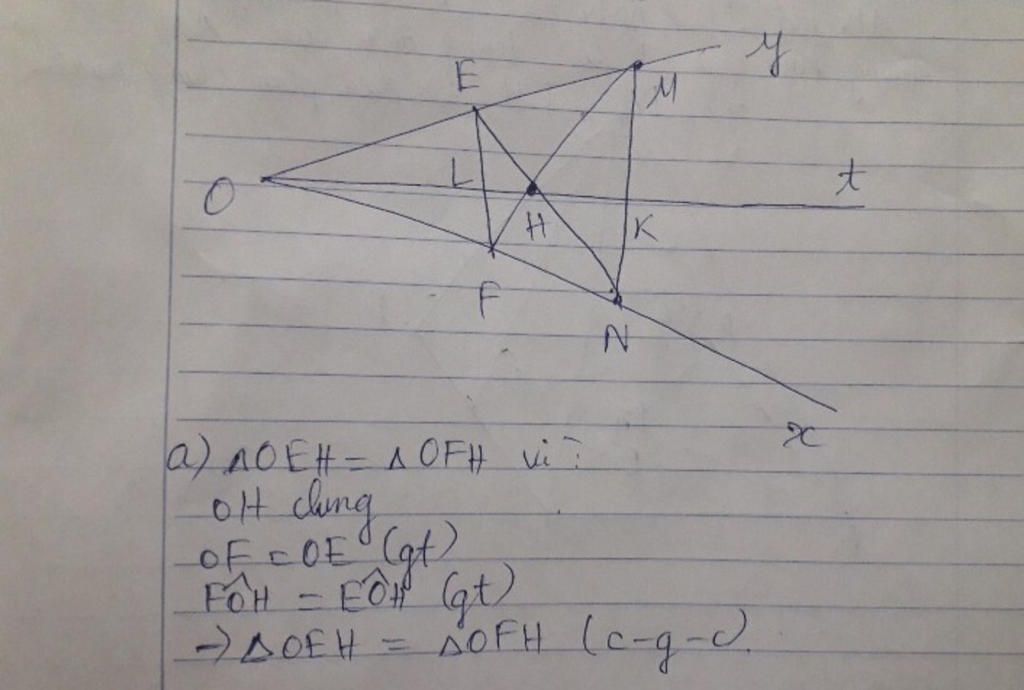 y
E
M
L
t
O
H
K
F
N
x
a) ΔOEH = ΔOFH vì:
OH chung
OF = OE (gt)
FÔH = EÔH (gt)
→ ΔOEH = ΔOFH (c-g-c).